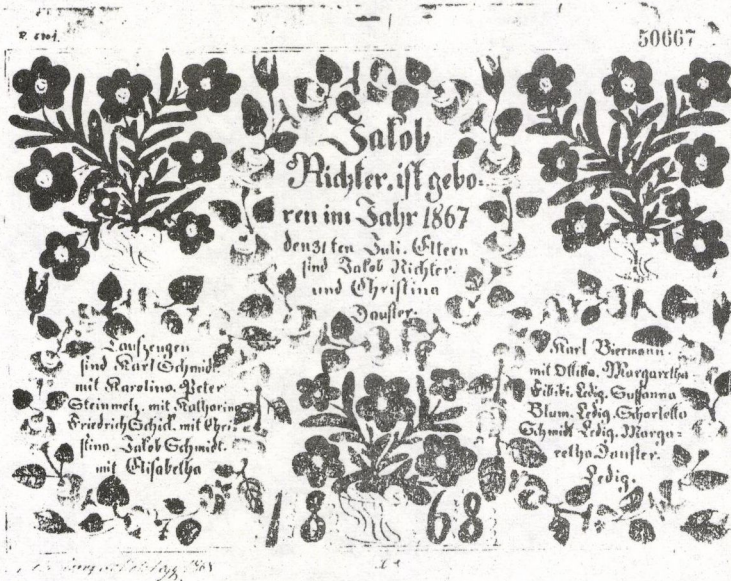 50667
Jakob
Richter. ist gebo=
ren im Jahr 1867
den 31ten Juli. Eltern
sind Jakob Richter.
und Christina
Dauster.
Taufzeugen
sind Karl Schmidt.
mit Karolina. Peter
Steinmetz. mit Katharina
Friedrich Schick. mit Chris
stina. Jakob Schmidt.
mit Elisabetha
Karl Biermann.
mit Ottilia. Margaretha
Ledig. Susanna
Blum. Ledig. Schorletto
Schmidt Ledig. Marga=
retha Dauster.
Ledig.
1868